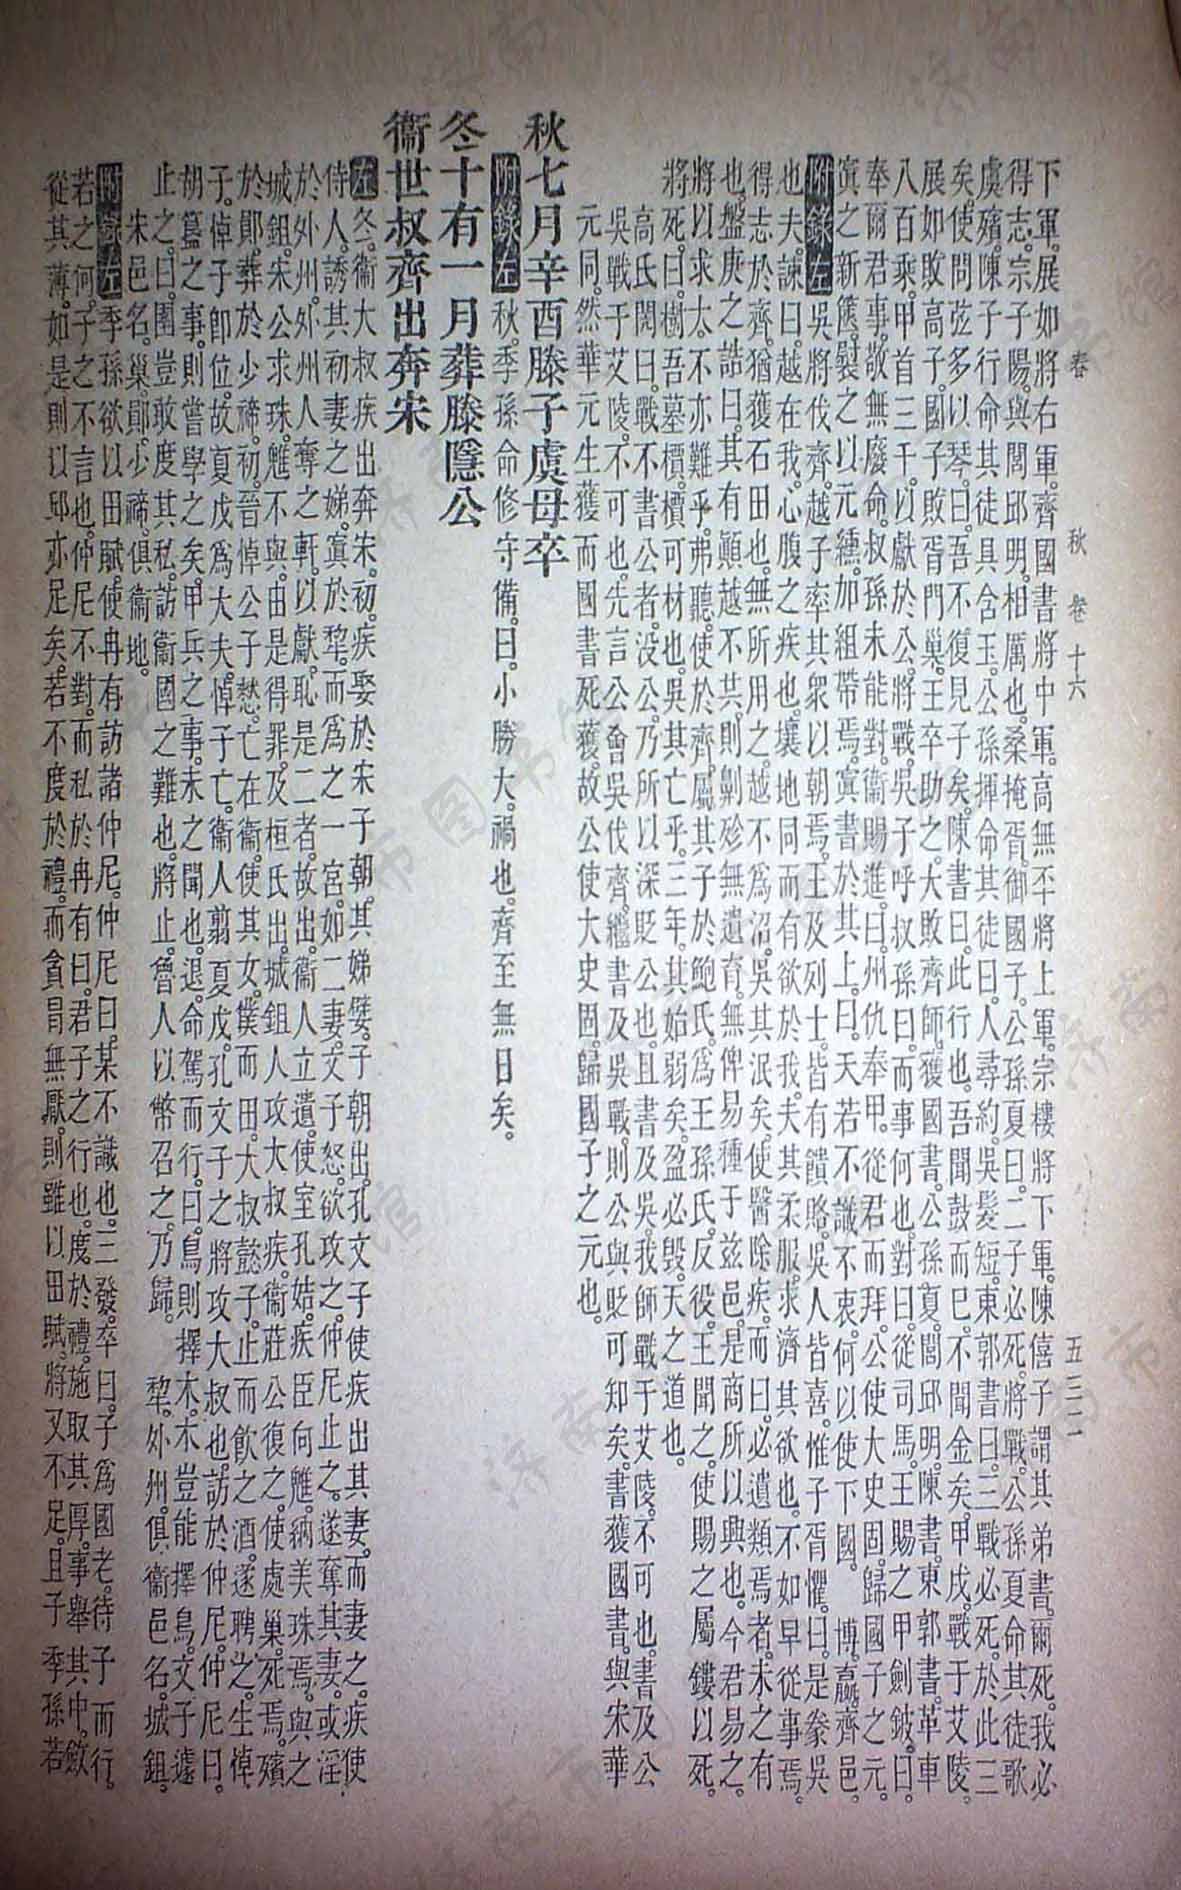 春　秋　卷十六　五三二
下軍展如將右軍齊國書將中軍高無㔻將上軍宗樓將下軍陳僖子謂其弟書爾死我必
得志宗子陽與閭邱明相厲也桑掩胥御國子公孫夏曰二子必死將戰公孫夏命其徒歌
虞殯陳子行命其徒具含玉公孫揮命其徒曰人尋約吳髮短東郭書曰三戰必死於此三
矣使問弦多以琴曰吾不復見子矣陳書曰此行也吾聞鼓而已不聞金矣甲戌戰于艾陵
展如敗高子國子敗胥門巢王卒助之大敗齊師獲國書公孫夏閭邱明陳書東郭書革車
八百乘甲首三千以獻於公將戰吳子呼叔孫曰而事何也對曰從司馬王賜之甲劍鈹曰
奉爾君事敬無廢命叔孫未能對衞賜進曰州仇奉甲從君而拜公使大史固歸國子之元
寘之新篋褽之以元纁加組帶焉寘書於其上曰天若不識不衷何以使下國　博嬴齊邑
附錄左吳將伐齊越子率其衆以朝焉王及列士皆有饋賂吳人皆喜惟子胥懼曰是豢吳
也夫諫曰越在我心腹之疾也壤地同而有欲於我夫其柔服求濟其欲也不如早從事焉
得志於齊猶獲石田也無所用之越不爲沼吳其泯矣使醫除疾而曰必遺類焉者未之有
也盤庚之誥曰其有顚越不共則劓殄無遺育無俾易種于兹邑是商所以興也今君易之
將以求大不亦難乎弗聽使於齊屬其子於鮑氏爲王孫氏反役王聞之使賜之屬鏤以死
將死曰樹吾墓檟檟可材也吳其亡乎三年其始弱矣盈必毀天之道也
高氏閌曰戰不書公者没公乃所以深貶公也且書及吳我師戰于艾陵不可也書及公
吳戰于艾陵不可也先言公會吳伐齊繼書及吳戰則公與貶可知矣書獲國書與宋華
元同然華元生獲而國書死獲故公使大史固歸國子之元也
秋七月辛酉滕子虞母卒
附錄左秋季孫命修守備曰小勝大禍也齊至無日矣
冬十有一月葬滕隱公
衞世叔齊出奔宋
左冬衞大叔疾出奔宋初疾娶於宋子朝其娣嬖子朝出孔文子使疾出其妻而妻之疾使
侍人誘其初妻之娣寘於犂而爲之一宮如二妻文子怒欲攻之仲尼止之遂奪其妻或淫
於外州外州人奪之軒以獻恥是二者故出衞人立遺使室孔姞疾臣向魋納美珠焉與之
城鉏宋公求珠魋不與由是得罪及桓氏出城鉏人攻大叔疾衞莊公復之使處巢死焉殯
於鄖葬於少禘初晉悼公子憖亡在衞使其女僕而田大叔懿子止而飮之酒遂聘之生悼
子悼子卽位故夏戊爲大夫悼子亡衞人翦夏戊孔文子之將攻大叔也訪於仲尼仲尼曰
胡簋之事則嘗學之矣甲兵之事未之聞也退命駕而行曰鳥則擇木木豈能擇鳥文子遽
止之曰圉豈敢度其私訪衞國之難也將止魯人以幣召之乃歸　犂外州俱衞邑名城鉏
宋邑名巢鄖少禘俱衞地
附錄左季孫欲以田賦使冉有訪諸仲尼仲尼曰某不識也三發卒曰子爲國老待子而行
若之何子之不言也仲尼不對而私於冉有曰君子之行也度於禮施取其厚事舉其中斂
從其薄如是則以邱亦足矣若不度於禮而貪冒無厭則雖以田賦將又不足且子季孫若